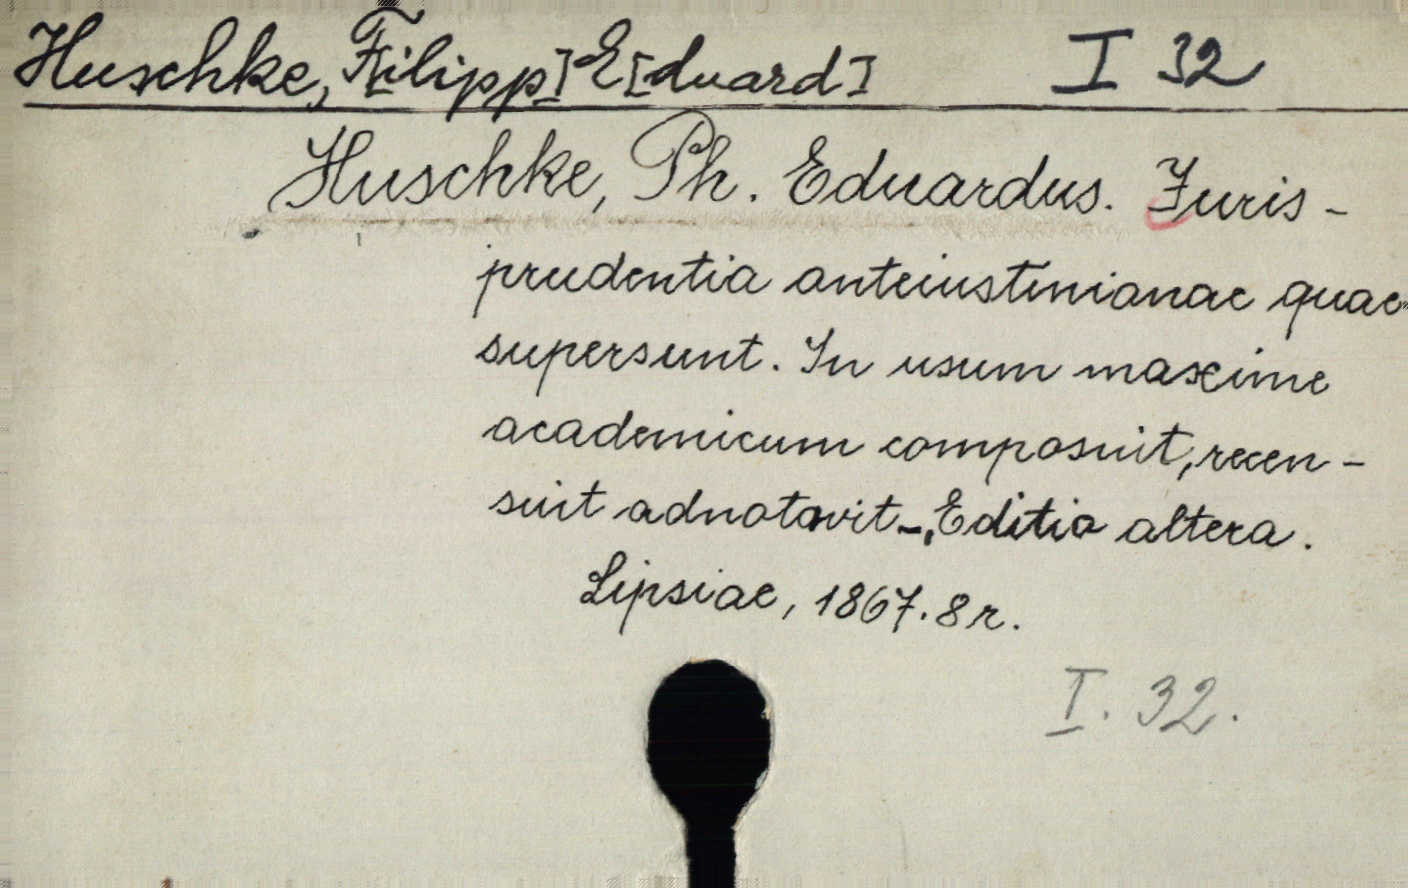 Huschke, F[ilipp] E[duard] I 32
Huschke, Ph. Eduardus. Juris-
prudentia anteiustinianae quae
supersunt. In usum maxime
academicum composuit, recen-
suit adnotavit-. Editio altera.
Lipsiae, 1867. 8r.
I. 32.